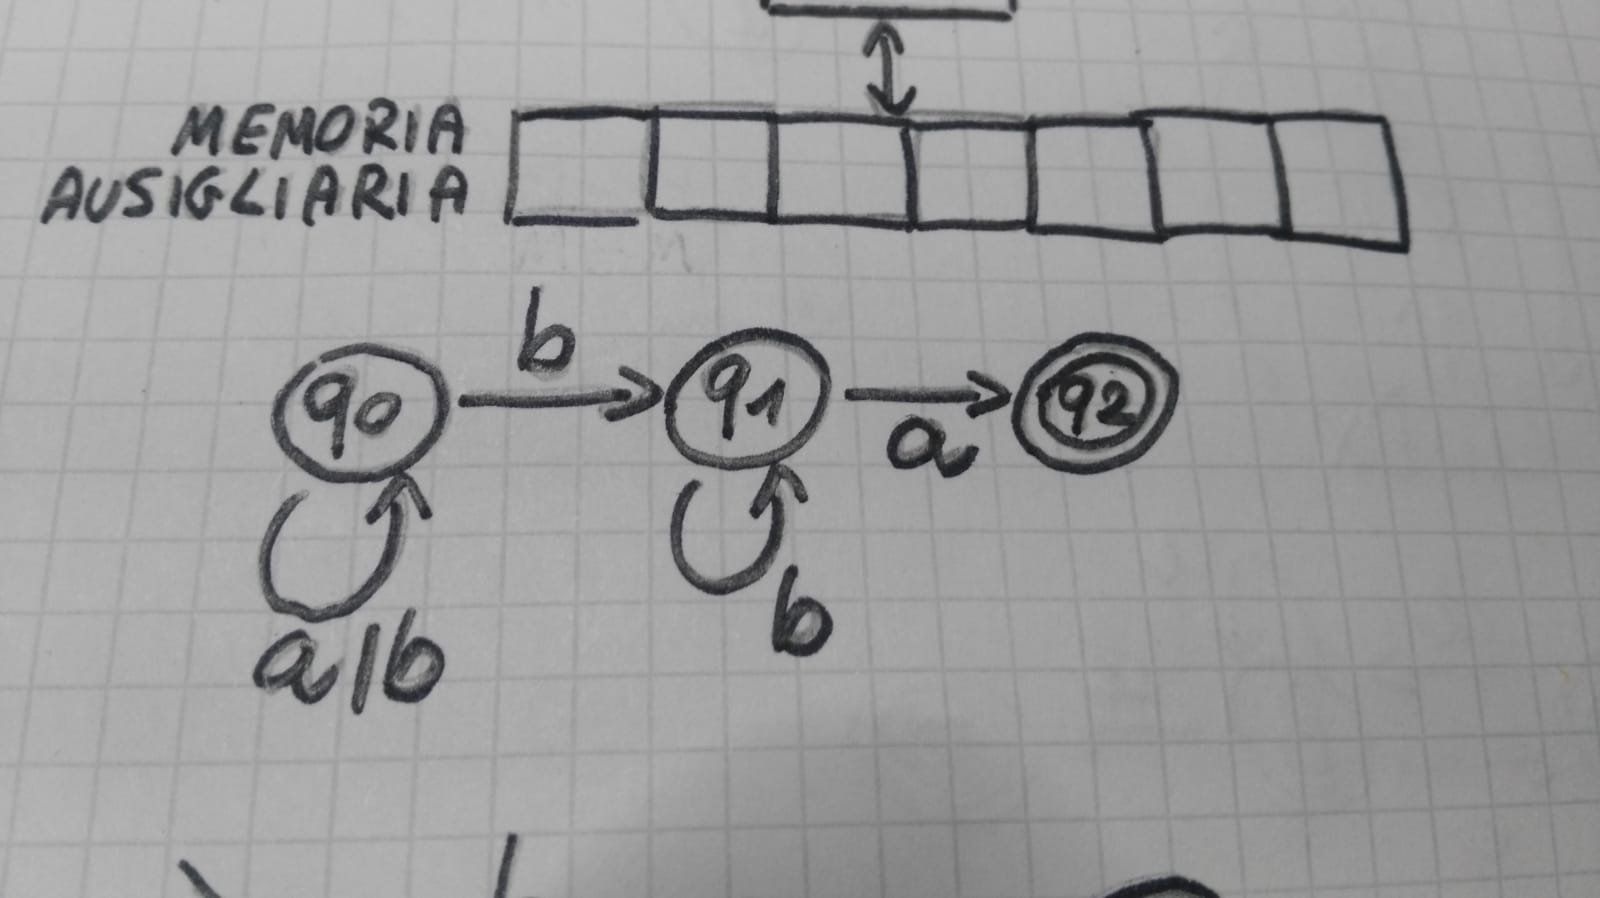 MEMORIA
AUSIGLIARIA
b
q0 q1 q2
a
b
a|b